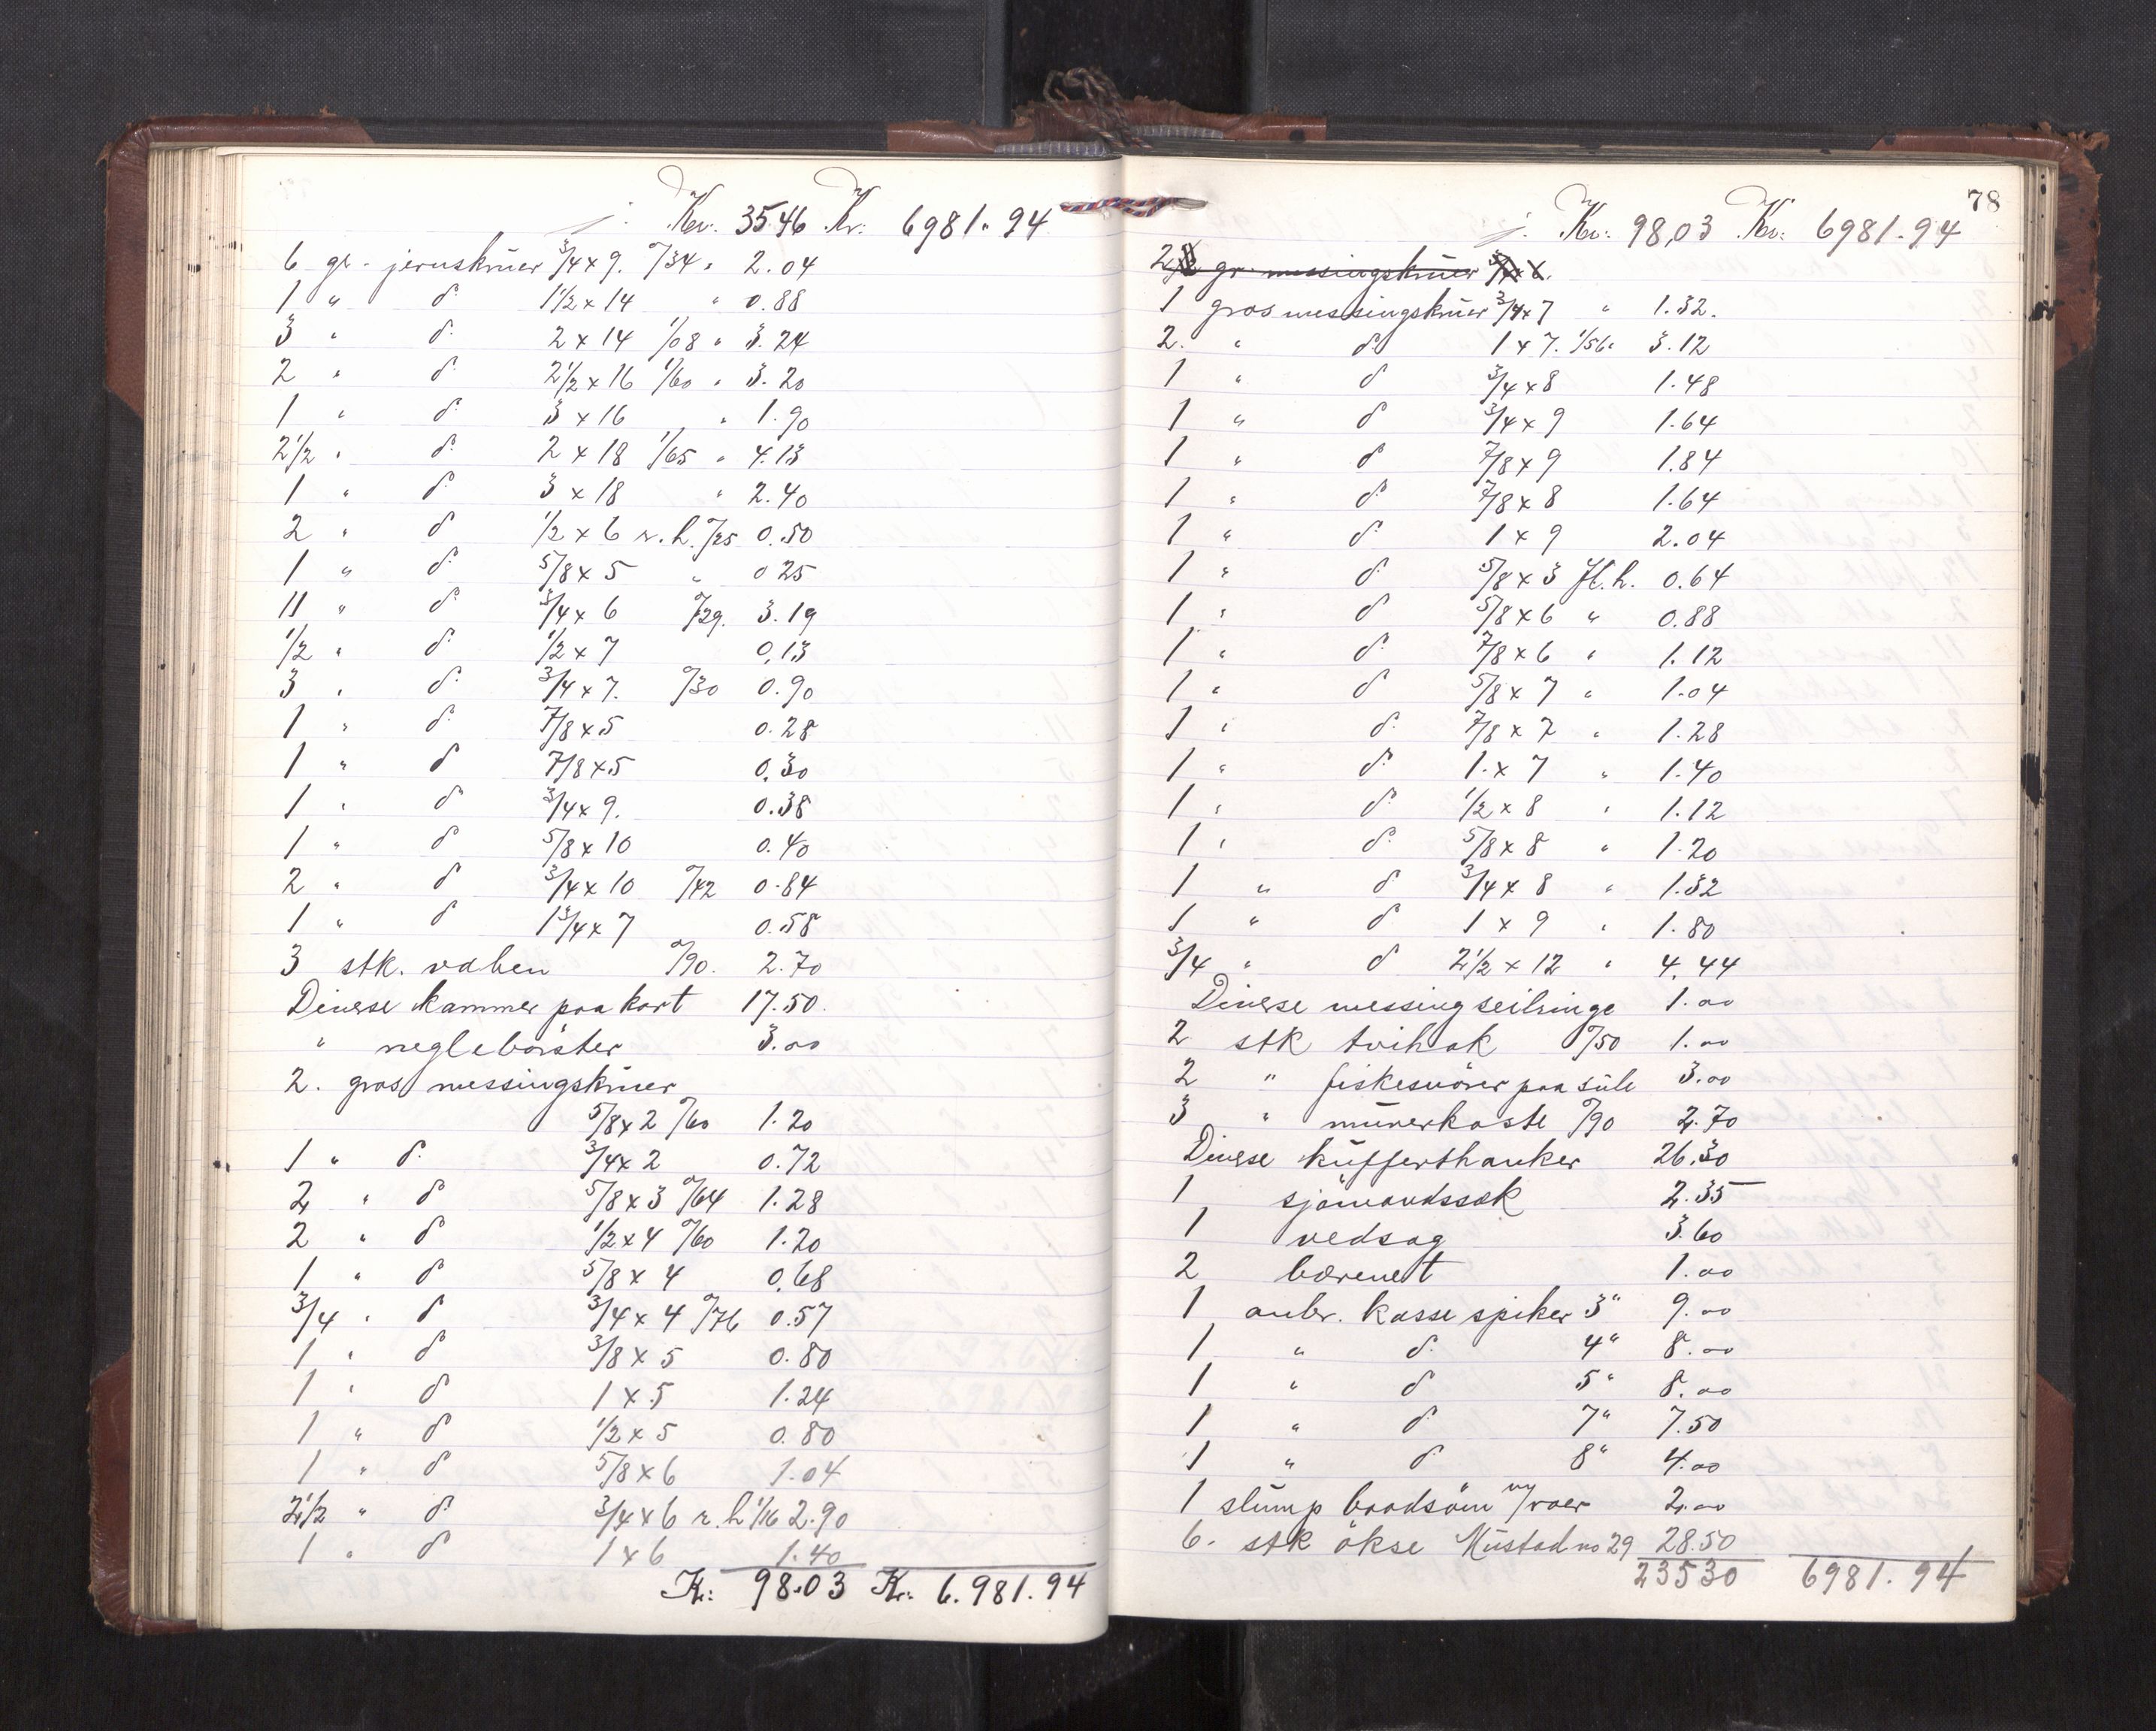 j. Kr. 35.46 Kr. 6981.94
6 gr. jernskruer 3/4 x 9. 0/34 " 2.04
1 " d. 1 1/2 x 14 " 0.88
3 " d. 2 x 14 1/08 " 3.24
2 " d. 2 1/2 x 16 1/60 " 3.20
1 " d. 3 x 16 " 1.90
2 1/2 " d. 2 x 18 1/65 " 4.13
1 " d. 3 x 18 " 2.40
2 " d. 1/2 x 6 r.h. 0/25 0.50
1 " d. 5/8 x 5 " 0 25
11 " d. 3/4 x 6 0/29. 3.19
1/2 " d. 1/2 x 7 0,13
3 " d. 3/4 x 7. 0/30 0.90
1 " d. 7/8 x 5 0.28
1 " d 7/8 x 5 0.30
1 " d 3/4 x 9. 0.38
1 " d 5/8 x 10 0.40
2 " d 3/4 x 10 0/42 0.84
1 " d 1 3/4 x 7 0.58
3 stk. vaben 0/90. 2.70
Diverse kammer paa kort 17.50.
" neglebörster 3.00
2. gros messingskruer
5/8 x 2 0/60 1.20
1 " d. 3/4 x 2 0.72
2 " d 5/8 x 3 0/64 1.28
2 " d 1/2 x 4 0/60 1.20
1 " d 5/8 x 4 0.68
3/4 " d 3/4 x 4 0/76 0.57
1 " d 3/8 x 5 0.80
1 " d 1 x 5 1.24
1 " d 1/2 x 5 0.80
1 " d 5/8 x 6 1.04
2 1/2 " d. 3/4 x 6 r.h 1/16 2.90
1 " d 1 x 6 1.40
Kr: 98.03 Kr. 6.981.94
78
j. Kr: 98,03 Kr: 6981.94
gr. messingskruer
1 gros messingskruer 3/4 x 7 " 1.32.
2. " d. 1 x 7. 1/56 " 3.12
1 " d 3/4 x 8 1.48
1 " d 3/4 x 9 1.64
1 " d 7/8 x 9 1.84
1 " d 7/8 x 8 1.64
1 " d. 1 x 9 2.04
1 " d 5/8 x 3 fl.h. 0.64
1 " d 5/8 x 6 " 0.88
1 " d. 7/8 x 6 " 1.12
1 " d 5/8 x 7 " 1.04
1 " d. 7/8 x 7 " 1.28
1 " d. 1 x 7 " 1.40
1 " d. 1/2 x 8 " 1.12
1 " d. 5/8 x 8 " 1.20
1 " d 3/4 x 8 " 1.32
1 " d 1 x 9 " 1.80
3/4 " d 2 1/2 x 12 " 4.44
Diverse messing seilringe 1.00
2 stk tvihak 0/50 1.00
2 " fiskesnörer paa sule 3.00
3 " murerkoste 0/90 2.70
Diverse kufferthanker 26.30
1 sjömandssæk 2.35
1 vedsag 3.60
2 bærenet 1.00
1 anbr. kasse spiker 3" 9.00
1 " d. 4" 8.00
1 " d 5" 8.00
1 " d 7" 7.50
1 " d 8" 4.00
1 slump baadsöm m/roer 2.00
6. stk ökse Mustad no 29 28.50
23530 6981.94